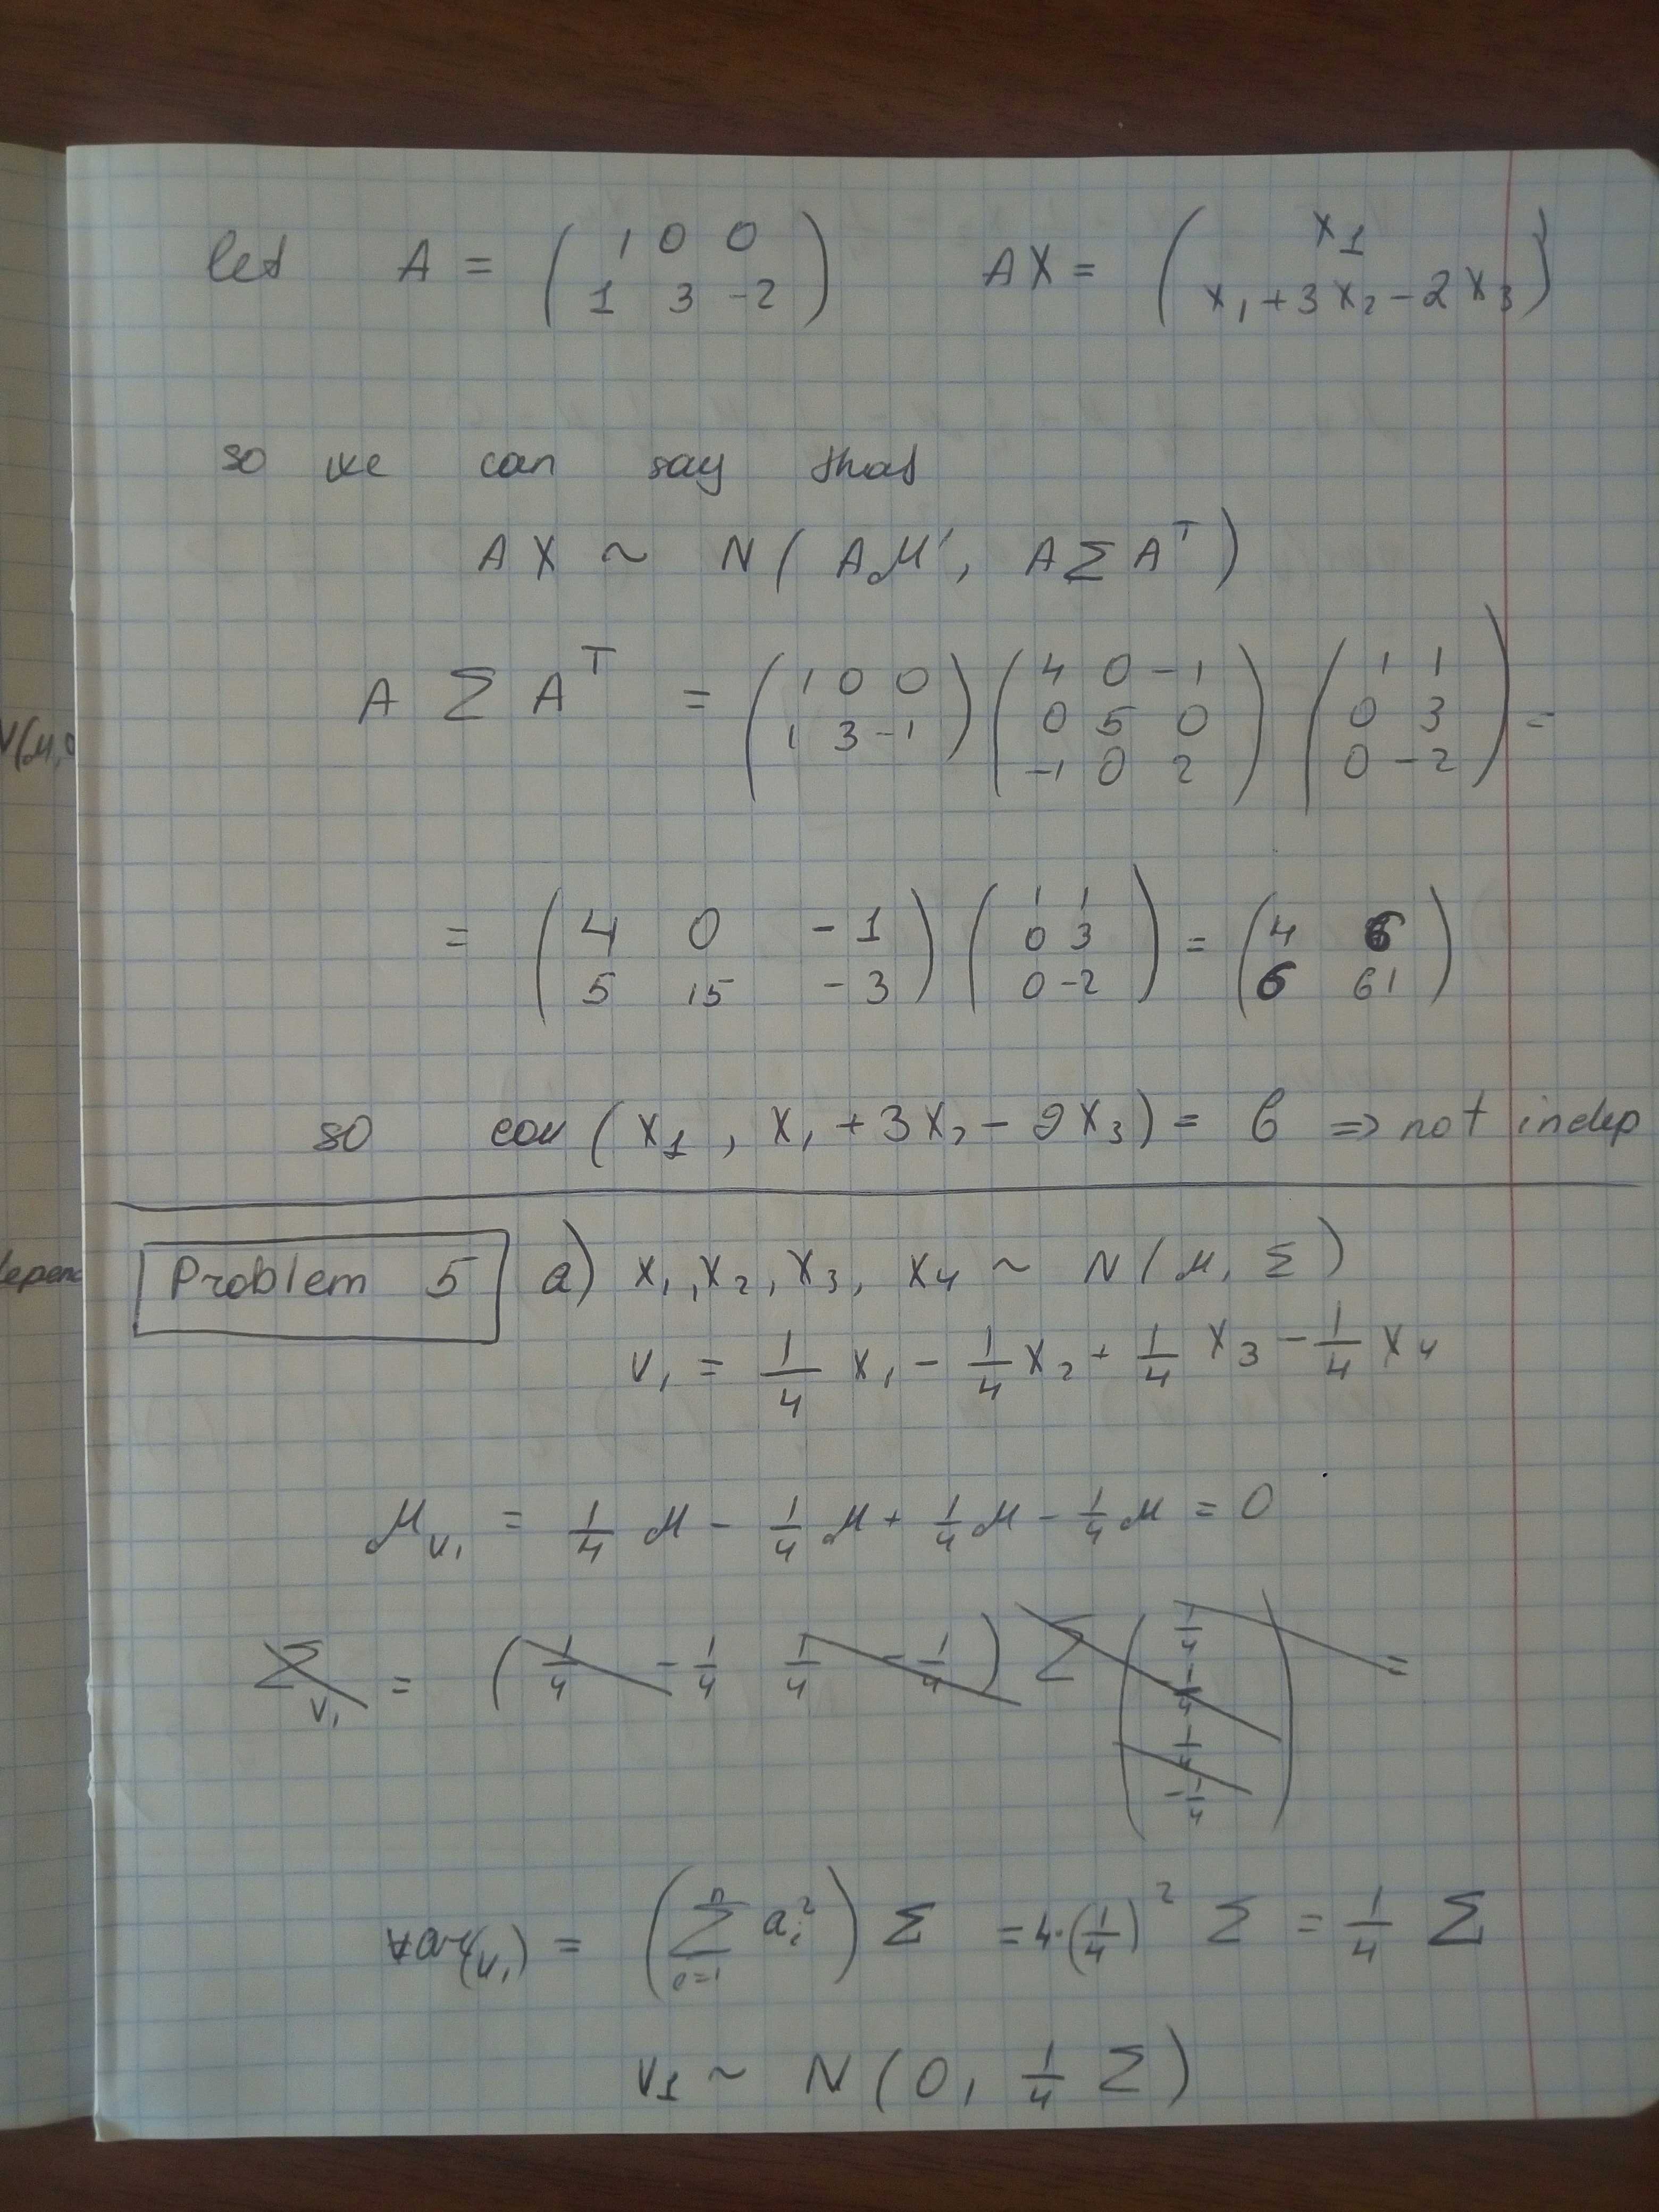 let A = ( 1 0 0 ; 1 3 -2 ) AX = ( X1 ; X1 + 3X2 - 2X3 )
so we can say that
AX ~ N( Aμ', AΣA^T )
AΣA^T = ( 1 0 0 ; 1 3 -1 ) ( 4 0 -1 ; 0 5 0 ; -1 0 2 ) ( 1 1 ; 0 3 ; 0 -2 ) =
= ( 4 0 -1 ; 5 15 -3 ) ( 1 1 ; 0 3 ; 0 -2 ) = ( 4 6 ; 6 61 )
so cov( X1, X1 + 3X2 - 2X3 ) = 6 => not indep
Problem 5 a) X1, X2, X3, X4 ~ N( μ, Σ )
V1 = 1/4 X1 - 1/4 X2 + 1/4 X3 - 1/4 X4
μ_V1 = 1/4 μ - 1/4 μ + 1/4 μ - 1/4 μ = 0
Σ_V1 = ( 1/4 -1/4 1/4 -1/4 ) Σ ( 1/4 ; -1/4 ; 1/4 ; -1/4 ) =
var(V1) = ( Σ a_i^2 ) Σ = 4·(1/4)^2 Σ = 1/4 Σ
V1 ~ N( 0, 1/4 Σ )
N(μ,